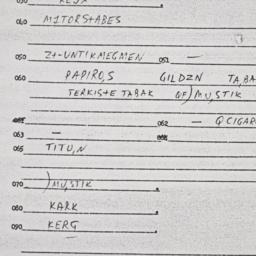 040 MITORSTABES
050 Z+-UNTIKMEGMEN 051 —
060 PAPIRO,S GILDZN TA,BA
TERKIS+E TABAK GF)MU,STIK
062 — QCIGAR
063 —
065 TITU,N
070 )MU,STIK
080 KARK
090 KERG